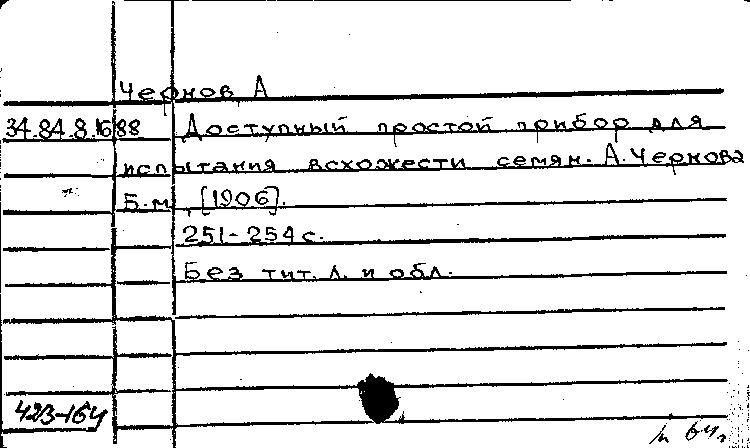 Чернов, А
34.84.8.1688 Доступный простой прибор для
испытания всхожести семян. А. Чернова
Б.м., [1906].
251-254 с.
Без тит. л. и обл.
423-164